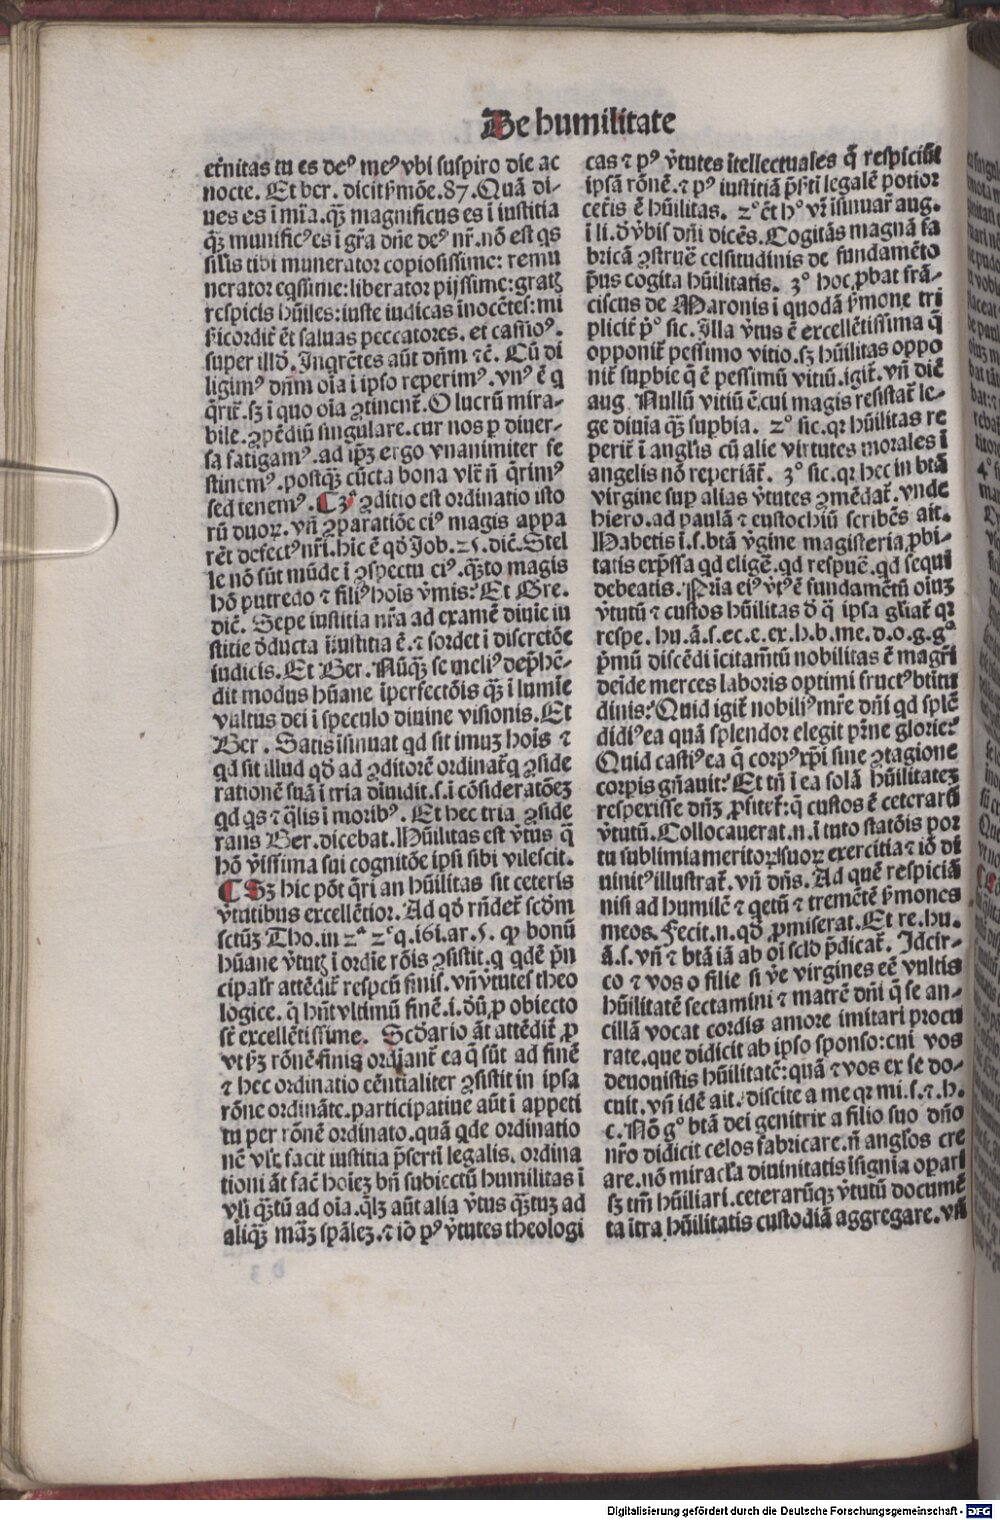 De humilitate
et̄nitas tu es deꝰ meꝰ vbi suspiro die ac
nocte. Et ber. dicit ẜmōe. 87. Quā di-
ues es ī mīa. qꝫ̄ magnificus es ī iustitia
qꝫ̄ munificꝰ es ī gr̄a dn̄e deꝰ nr̄. nō est qs
sil̄is tibi munerator copiosissime: remu
nerator eqssime: liberator pijssime: gratꝭ
respicis hūiles: iuste iudicas īnocētes: mi
ẜicordit̄ ēt saluas peccatores. et cassioꝰ.
super illđ. Ingrētes aūt dn̄m ⁊c̄. Cū di
ligimꝰ dn̄m oīa ī ipso reperimꝰ. vnꝰ ē q
q̄rit̄. sꝫ ī quo oīa ꝯtinent̄. O lucrū mira-
bile. ꝯpēdiū singulare. cur nos ꝑ diuer-
sa fatigamꝰ. ad ip̄ꝫ ergo vnanimiter fe
stinemꝰ. postqꝫ̄ cūcta bona vlt̄ n̄ q̄rimꝰ
sed tenemꝰ. ¶ 3ᵃ ꝯditio est ordinatio isto
rū duoꝝ. vn̄ ꝯparatiōe eiꝰ magis appa
rēt defectꝰ nr̄i. hic ē qđ Job. 25. diē. Stel
le nō sūt mūde ī ꝯspectu eiꝰ. qꝫ̄to magis
hō putredo ⁊ filiꝰ hois v̄mis: Et Gre.
diē. Sepe iustitia nr̄a ad examē diuīe iu
stitie đducta īiustitia ē. ⁊ sordet ī discretōe
iudicis. Et Ber. Nūqꝫ̄ se meliꝰ dep̄hē-
dit modus hūane īperfectōis qꝫ̄ ī lumīe
vultus dei ī speculo diuine visionis. Et
Ber. Satis īsinuat qd sit imuꝫ hoīs ⁊
qd sit illud qđ ad ꝯditorē ordinat̄q ꝯside
rationē suā ī tria diuidit. s. ī cōsideratōeꝫ
qd qs ⁊ q̄lis ī moribꝰ. Et hec tria ꝯside
rans Ber. dicebat. Hūilitas est v̄tus q̄
hō v̄issima sui cognitōe ipsi sibi vilescit.
¶ Sꝫ hic pōt q̄ri an hūilitas sit ceteris
v̄tutibus excellētior. Ad qđ rn̄det̄ scđm
sctūꝫ Tho. in 2ᵃ 2ᵉ q. 161. ar. 5. ꝙ bonū
hūane v̄tutꝭ ī ordīe rōis ꝯsistit. q qdē p̄n
cipalr̄ attēdit̄ respcū finis. vn̄ v̄tutes theo
logice. q̄ hn̄t vltimū finē. i. đū ꝓ obiecto
st̄ excellētissime. Scđario āt attēdit̄ ꝓ
vt ẜꝫ rōnē finis ordīant̄ ea q̄ sūt ad finē
⁊ hec ordinatio cēntialiter ꝯsistit in ipsa
rōne ordināte. participatiue aūt ī appeti
tu per rōnē ordinato. quā qde ordinatio
nē vlr̄ facit iustitia p̄serti legalis. ordina
tioni āt fac̄ hoieꝫ bn̄ subiectū humilitas ī
vlī qꝫ̄tū ad oīa. qlꝫ aūt alia v̄tus qꝫ̄tuꝫ ad
aliqꝫ̄ māꝫ spāleꝫ. ⁊ iō pꝰ v̄tutes theologi
cas ⁊ pꝰ v̄tutes ītellectuales q̄ respiciūt
ipsā rōnē. ⁊ pꝰ iustitiā p̄sti legalē potior
cet̄is ē hūilitas. 2ᵒ ēt hᵒ vr̄ īsinuar̄ aug.
ī li. đ v̄bis dn̄i dicēs. Cogitās magnā fa
bricā ꝯstruē celsitudinis de fundamēto
p̄us cogita hūilitatis. 3ᵒ hoc ꝓbat frā-
ciscus de Maronis ī quodā ẜmone tri
plicit̄ pᵒ sic. Illa v̄tus ē excellētissima q̄
opponit̄ pessimo vitio. sꝫ hūilitas oppo
nit̄ suꝑbie q̄ ē pessimū vitiū. igit̄. vn̄ diē
aug. Nullū vitiū ē cui magis resistat̄ le-
ge diuīa qꝫ̄ suꝑbia. 2ᵒ sic. qꝛ hūilitas re
perit̄ ī angl̄is cū alie virtutes morales ī
angelis nō reperiāt̄. 3ᵒ sic. qꝛ hec in btā
virgine suꝑ alias v̄tutes ꝯmēdat̄. vnde
hiero. ad paulā ⁊ eustochiū scribēs ait.
Habetis ī. s. btā v̄gine magisteria ꝓbi-
tatis exp̄ssa qd eligē. qd respuē. qd sequi
debeatis. Pria eiꝰ v̄ꝰ ē fundamētū oiuꝫ
v̄tutū ⁊ custos hūilitas đ q̄ ipsa gl̄iat̄ qꝛ
respe. hu. ā. s. ec. e. ex. h. b. me. d. o. g. gᵒ
p̄mū discēdi īcitam̄tū nobilitas ē magr̄i
deīde merces laboris optimi fructꝰ btītu
dinis: Quid igit̄ nobiliꝰ mr̄e dn̄i qd splē
didiꝰ ea quā splendor elegit pr̄ne glorie:
Quid castiꝰ ea q̄ corpꝰ xp̄i sine ꝯtagione
corpis gn̄auit: Et tn̄ ī ea solā hūilitateꝫ
resperisse dn̄ꝫ ꝓfitet̄: q̄ custos ē ceterarū
v̄tutū. Collocauerat. n. ī tuto statōis por
tu sublimia meritoꝝ suoꝝ exercitia ⁊ iō di
uinitꝰ illustrat̄. vn̄ dn̄s. Ad quē respiciā
nisi ad humilē ⁊ qetū ⁊ tremētē ẜmones
meos. Fecit. n. qđ ꝓmiserat. Et re. hu.
ā. s. vn̄ ⁊ btā iā ab oi sclo p̄dicat̄. Idcir-
co ⁊ vos o filie si v̄e virgines eē vultis
hūilitatē sectamini ⁊ matrē dn̄i q̄ se an-
cillā vocat cordis amore imitari procu
rate. que didicit ab ipso sponso: cui vos
deuouistis hūilitatē: quā ⁊ vos ex se do-
cuit. vn̄ idē ait. discite a me qꝛ mi. s. ⁊. h.
c. Nō gᵒ btā dei genitrix a filio suo dn̄o
nr̄o didicit celos fabricare. n̄ angl̄os cre
are. nō miracl̄a diuinitatis īsignia oꝑari
sꝫ tm̄ hūiliari. ceterarūqꝫ v̄tutū documē
ta ītra hūilitatis custodiā aggregare. vn̄
Digitalisierung gefördert durch die Deutsche Forschungsgemeinschaft - DFG